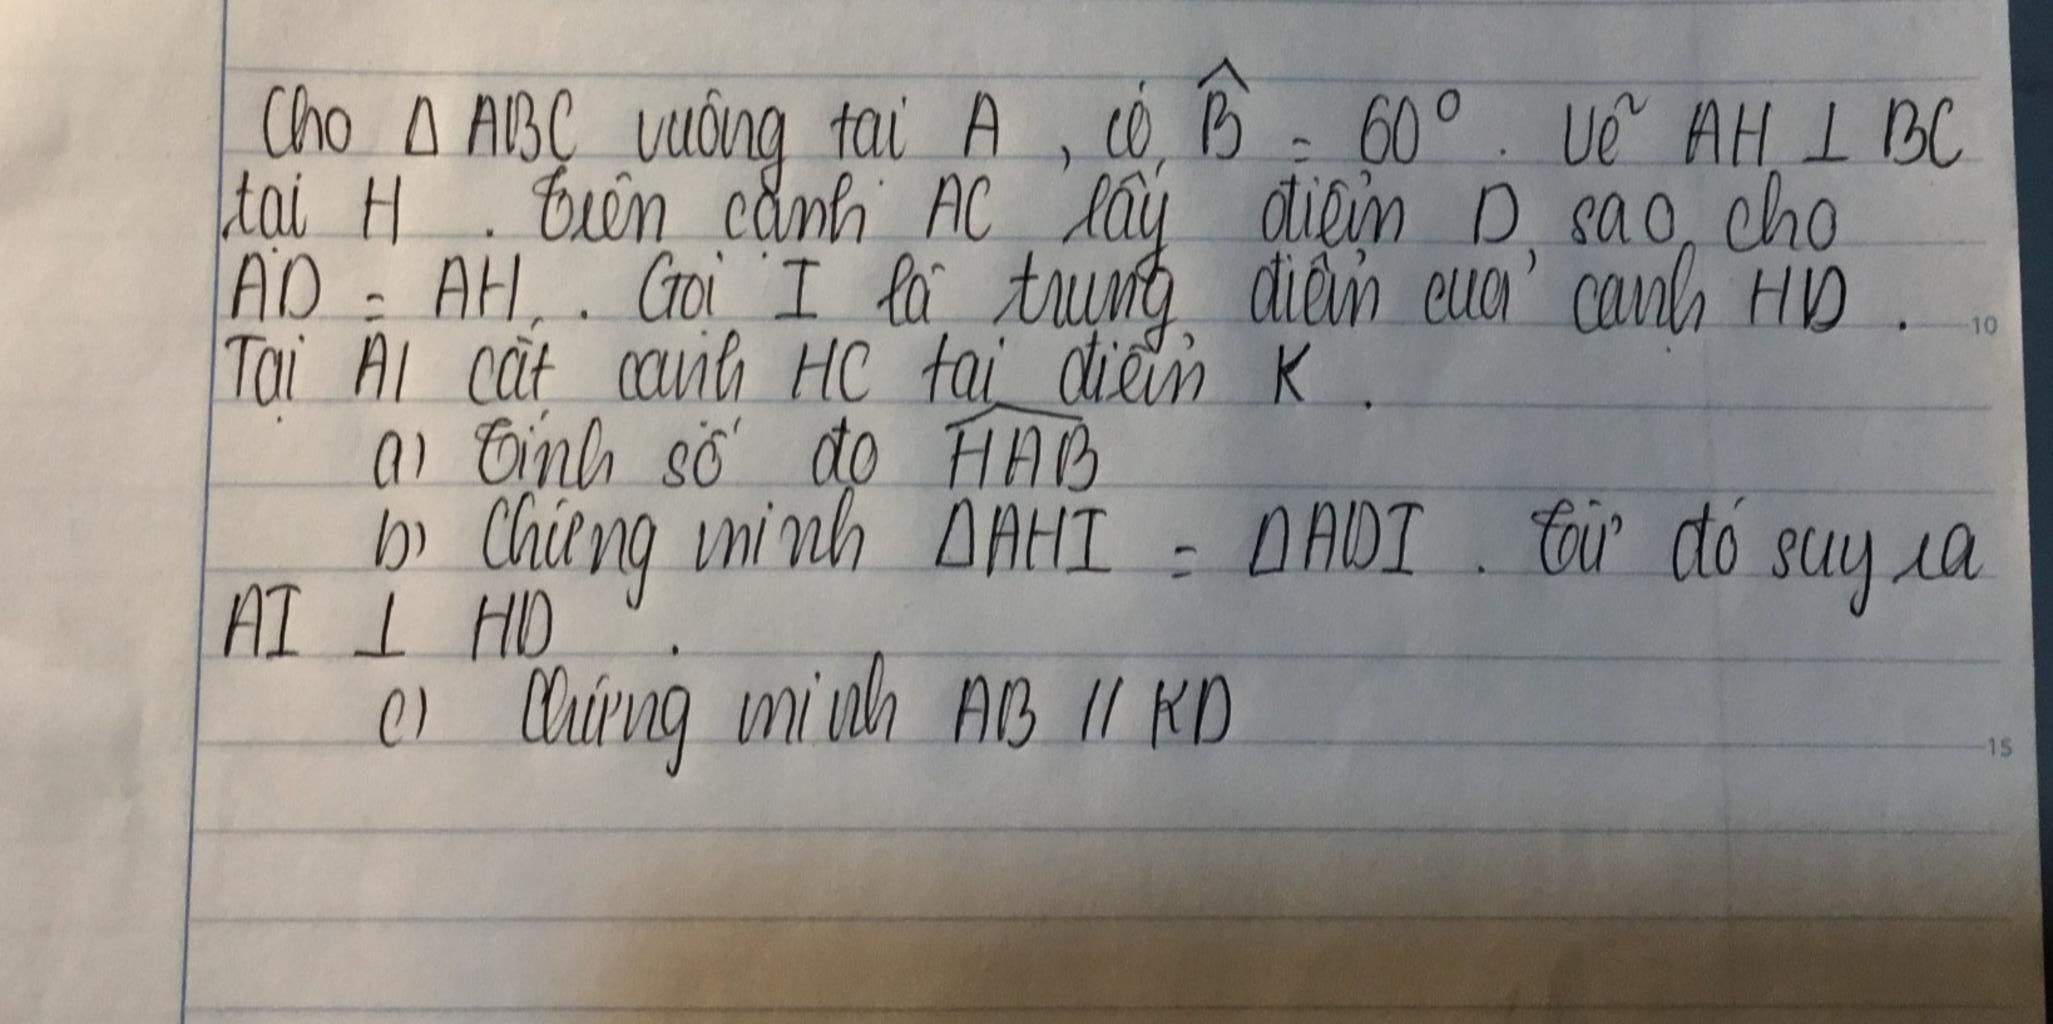 Cho Δ ABC vuông tại A , có B̂ = 60° . Vẽ AH ⊥ BC
tại H . Trên cạnh AC lấy điểm D sao cho
AD = AH . Gọi I là trung điểm của cạnh HD .
Tại AI cắt cạnh HC tại điểm K .
a) Tính số đo HAB
b) Chứng minh ΔAHI = ΔADI . Từ đó suy ra
AI ⊥ HD .
c) Chứng minh AB // KD
10
15